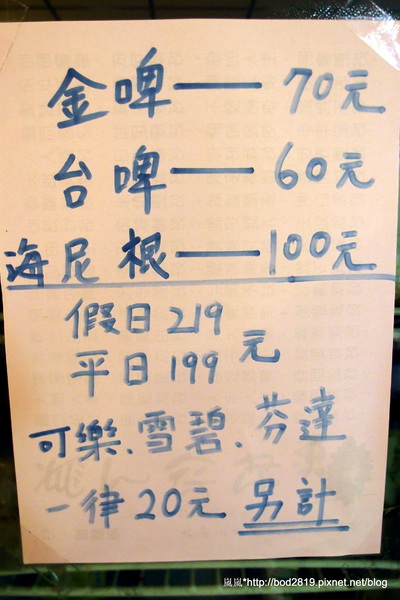 金啤——70元
台啤——60元
海尼根——100元
假日219
平日199 元
可樂.雪碧.芬達
一律20元 另計
嵐嵐*http://bod2819.pixnet.net/blog